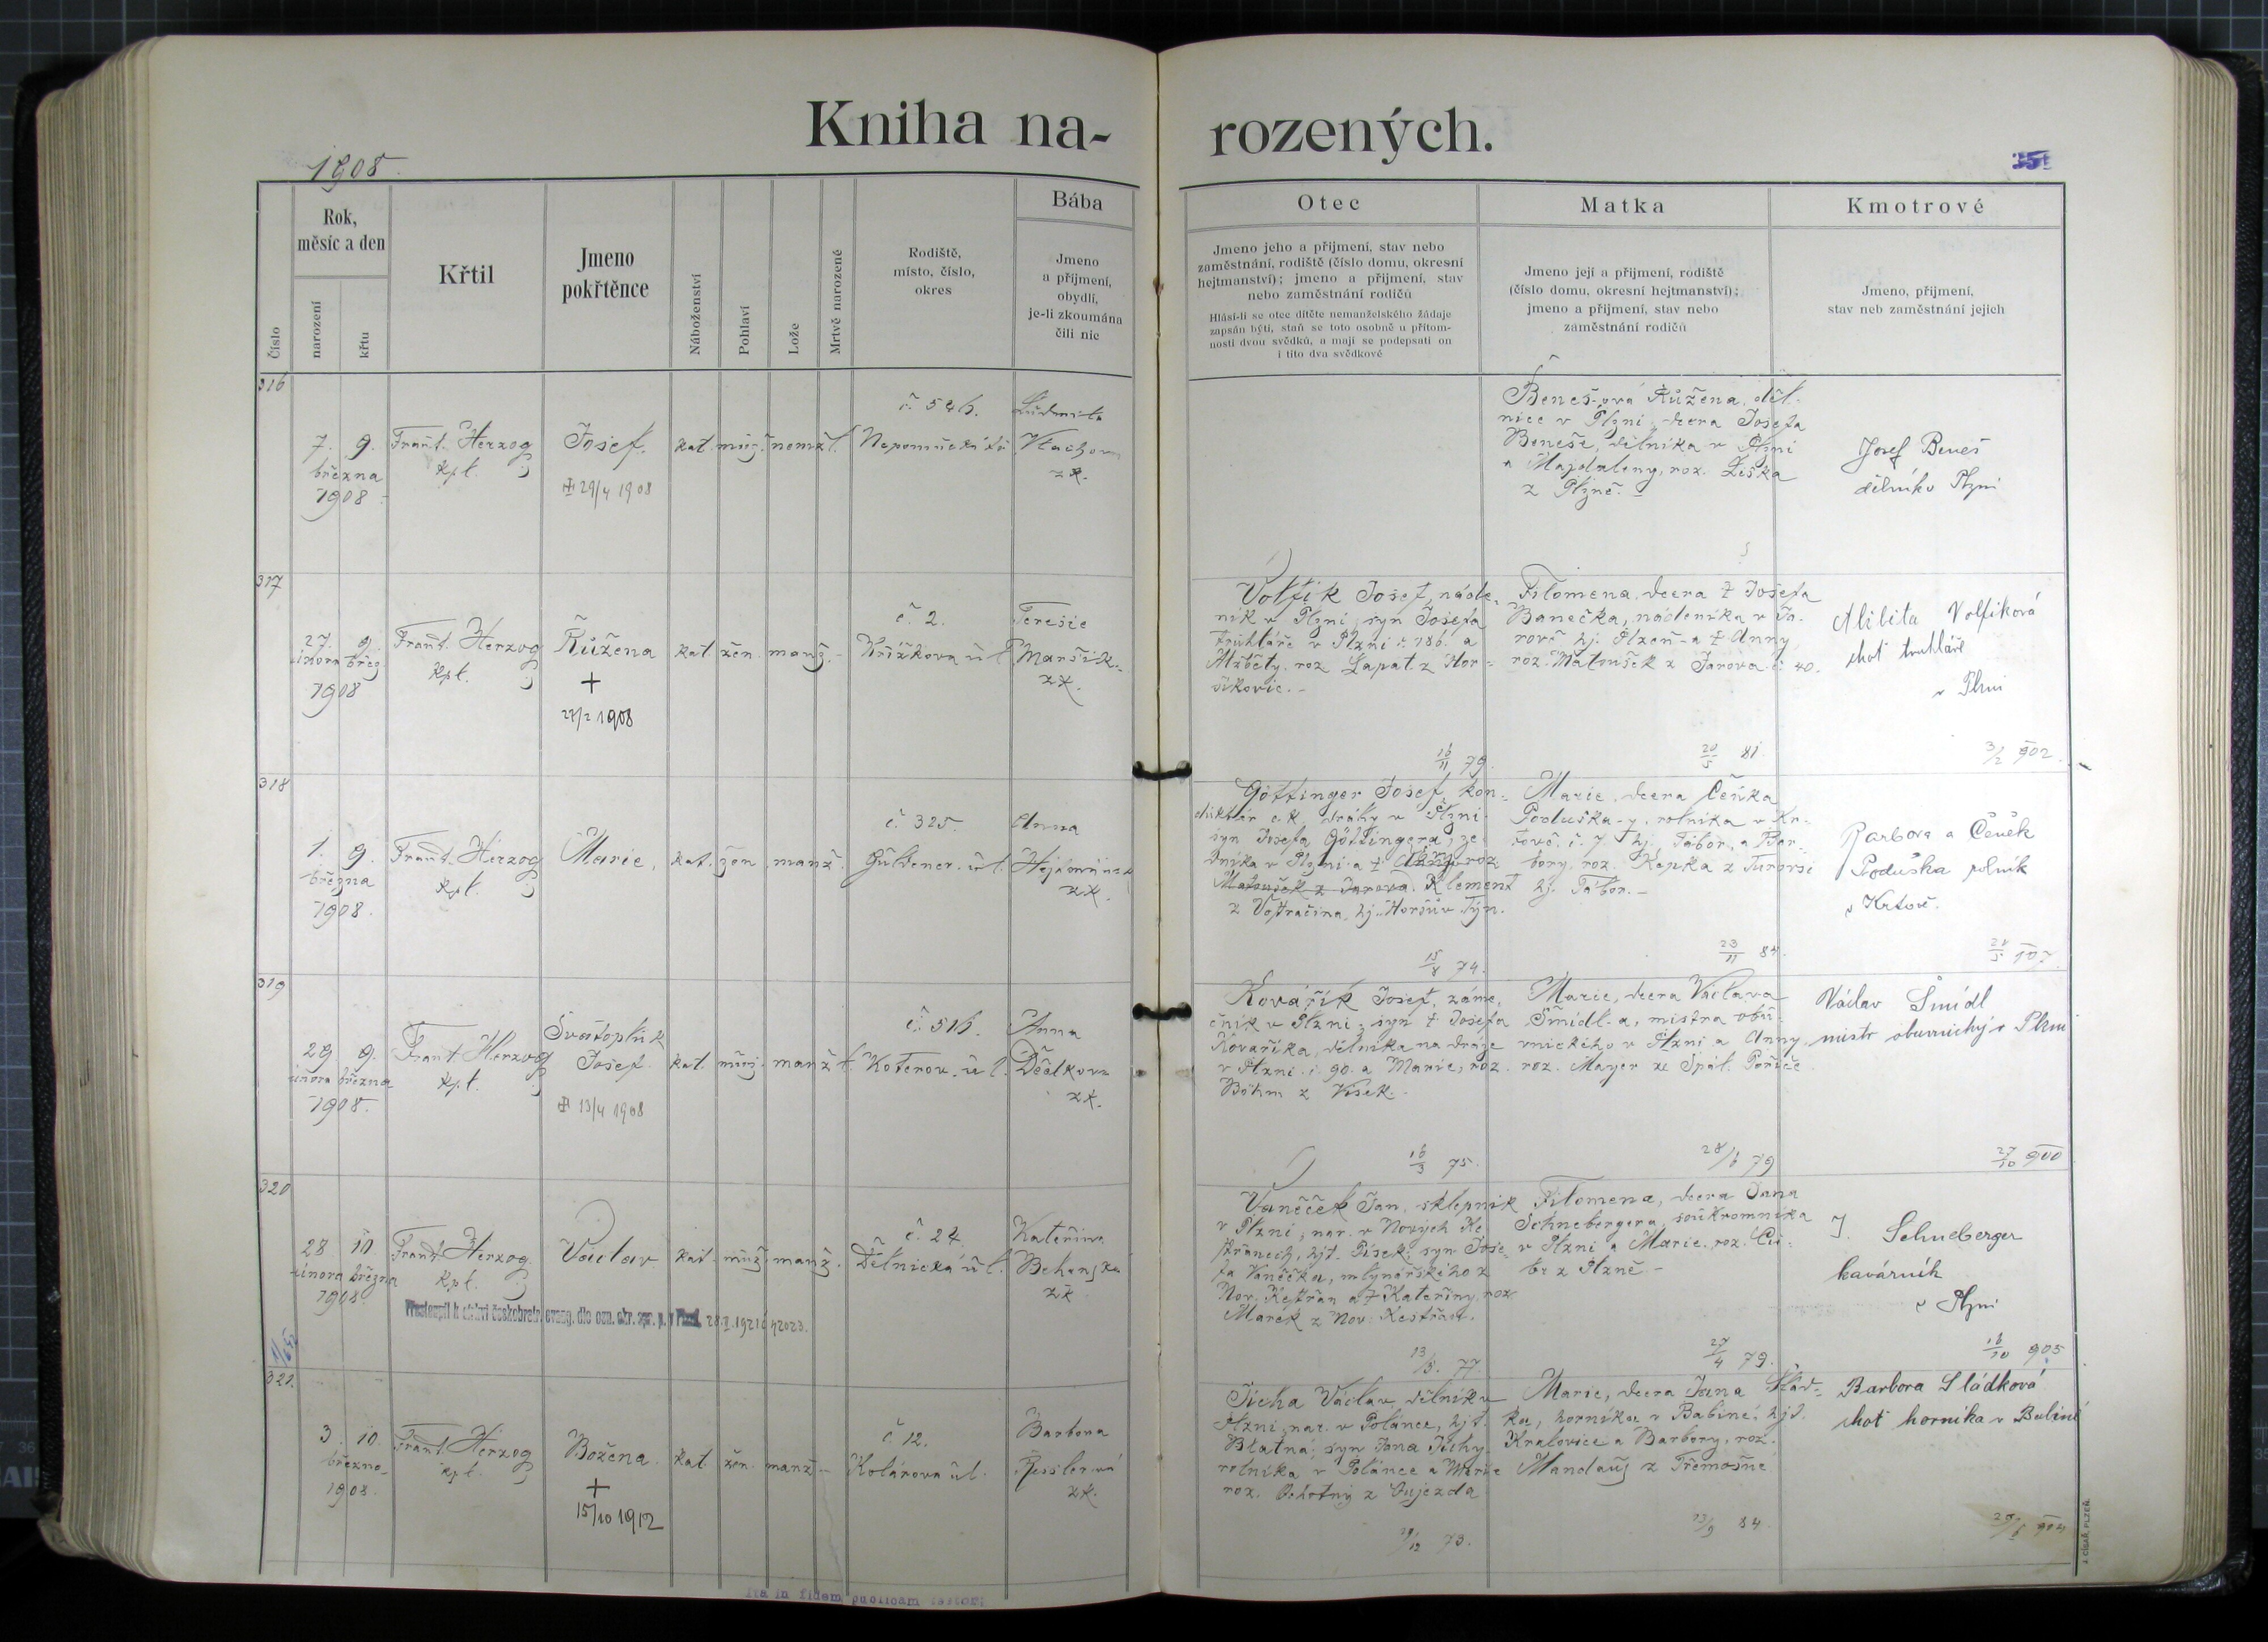 Kniha na-
rozených.
1908.
351
Číslo
Rok,
měsíc a den
narození
křtu
Křtil
Jmeno
pokřtěnce
Náboženství
Pohlaví
Lože
Mrtvě narozené
Rodiště,
místo, číslo,
okres
Bába
Jmeno
a příjmení,
obydlí,
je-li zkoumána
čili nic
Otec
Jmeno jeho a přijmení, stav nebo
zaměstnání, rodiště (číslo domu, okresní
hejtmanství); jmeno a přijmení, stav
nebo zaměstnání rodičů
Hlásí-li se otec dítěte nemanželského žádaje
zapsán býti, staň se toto osobně u přítom-
nosti dvou svědků, a mají se podepsati on
i tito dva svědkové
Matka
Jmeno její a přijmení, rodiště
(číslo domu, okresní hejtmanství);
jmeno a přijmení, stav nebo
zaměstnání rodičů
Kmotrové
Jmeno, přijmení,
stav neb zaměstnání jejich
316
7. 9.
března
1908
Frant. Herzog
kpl.
Josef.
29/4 1908
kat. muž. nemžl.
č. 546.
Nepomucká tř.
Ludmila
Vlachova
zk.
Beneš-ová Růžena, děl-
nice v Plzni, dcera Josefa
Beneše, dělníka v Plzni
a Magdaleny, roz. Žiška
z Plzně.
Josef Beneš
dělník v Plzni
317
27. 9.
února břez.
1908
Frant. Herzog
kpl.
Růžena
+
27/2 1908
kat. žen. manž.
č. 2.
Křižíkova ul.
Terezie
Maršík.
zk.
Volfík Josef, náde-
ník v Plzni, syn Josefa
truhláře v Plzni č. 186. a
Alžběty, roz. Lapat z Hor-
šikovic.
16/11 79.
Filomena, dcera † Josefa
Banečka, nádeníka v Ja-
rově hj. Plzeň a † Anny
roz. Matoušek z Jarova č. 40.
20/5 81.
Volfiková
choť truhláře
v Plzni
3/2 902.
318
1. 9.
března
1908.
Frant. Herzog
kpl.
Marie,
kat. žen. manž.
č. 325.
Guldener. ul.
Anna
zk.
Göttinger Josef, kon-
duktér c.k. dráhy v Plzni
syn Josefa Göttingera, ze-
dníka v Plzni a † roz
Matoušek z Jarova. Klement
z Vostračina, hj. Horšův Týn.
15/8 74.
Marie, dcera Čeňka
Poduška-y, rolníka v Kr-
tově č. 7 hj. Tábor, a Bar-
bory, roz. Kepka z
hj. Tábor.
23/11 84.
Barbora a Čeněk
Poduška rolník
v Krtově.
28/5 907
319
29. 9.
února března
1908.
Frant. Herzog
kpl.
Svatopluk
Josef.
13/4 1908
kat. muž. manž.
č. 516.
Koterov. ul.
Anna
Dčálkova
zk.
Kovářík Josef, záme-
čník v Plzni, syn † Josefa
Kovaříka, dělníka na dráze
v Plzni č. 90. a Marie, roz.
Böhm z Vísek.
16/3 75.
Marie, dcera Václava
Šmídl-a, mistra obu-
vnického v Plzni a Anny
roz. Mayer ze Spál. Poříče
28/6 79
Václav Šmídl
mistr obuvnický v Plzni
27/10 900
320
28. 10.
února března
1908
Frant. Herzog
kpl.
Václav
kat. muž. manž.
č. 24
Dělnická ul.
Kateřina
zk.
Přestoupil k církvi českobratr. evang. dle ozn. okr. spr. p. v Plzni 28.II.1921 č 42023.
Vaněček Jan, sklepník
v Plzni, nar. v Nových Ke-
střanech, hjt. Písek, syn Jose-
fa Vaněčka, mlynářského z
Nov. Kestřan a † Kateřiny, roz.
Marek z Nov. Kestřan.
13/5. 77.
Filomena, dcera Jana
Schnebergera, soukromníka
v Plzni a Marie, roz. Ci-
br z Plzně
27/4 79.
J. Schneberger
kavárník
v Plzni
16/10 905
321.
3. 10.
března
1908.
Frant. Herzog
kpl.
Božena.
+
15/10 1912
kat. žen. manž.
č. 12.
Kolárova ul.
Barbora
Kesslerová
zk.
Tichá Václav, dělník v
Plzni, nar. v Polánce, hjt.
Blatná, syn Jana Tichy,
rolníka v Polánce a Marie
roz. Ochotný z Oujezda
29/12 73.
Marie, dcera Jana Slád-
ka, horníka v Babině, hjt.
Kralovice a Barbory, roz.
Mandaus z Třemošne
13/9 84
Barbora Sládková
choť horníka v Babině
Ita in fidem publicam testor:
J. CÍSAŘ, PLZEŇ.